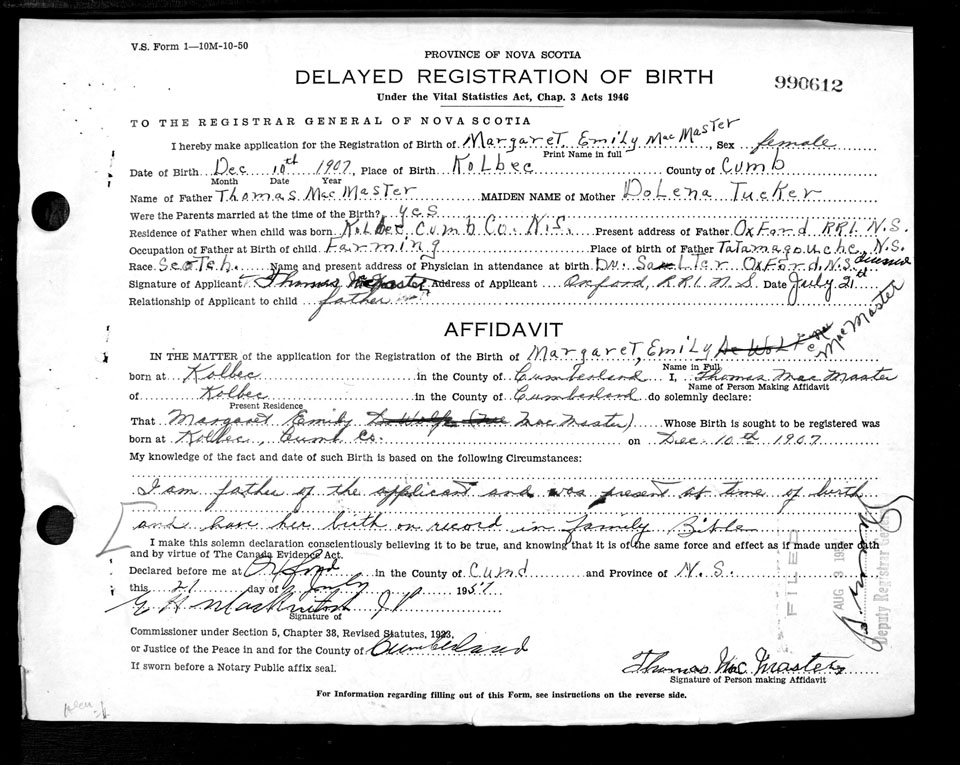 V.S. Form 1—10M-10-50
PROVINCE OF NOVA SCOTIA
DELAYED REGISTRATION OF BIRTH
990612
Under the Vital Statistics Act, Chap. 3 Acts 1946
TO THE REGISTRAR GENERAL OF NOVA SCOTIA
I hereby make application for the Registration of Birth of Margaret, Emily MacMaster, Sex female
Print Name in full
Date of Birth Dec 10th 1907, Place of Birth Kolbec County of Cumb
Month Date Year
Name of Father Thomas MacMaster MAIDEN NAME of Mother DoLena Tucker
Were the Parents married at the time of the Birth? yes
Residence of Father when child was born Kolbec Cumb Co. N.S. Present address of Father Oxford RR1. N.S.
Occupation of Father at Birth of child Farming Place of birth of Father Tatamagouche, N.S.
Race Scotch. Name and present address of Physician in attendance at birth Dr. Salter Oxford, N.S.
Signature of Applicant Thomas MacMaster Address of Applicant Oxford, RR1 N.S. Date July 21
Relationship of Applicant to child father
AFFIDAVIT
IN THE MATTER of the application for the Registration of the Birth of Margaret, Emily MacMaster
Name in Full
born at Kolbec in the County of Cumberland I, Thomas MacMaster
Name of Person Making Affidavit
of Kolbec in the County of Cumberland do solemnly declare:
Present Residence
That Margaret Emily MacMaster) Whose Birth is sought to be registered was
born at Kolbec, Cumb Co. on Dec. 10th 1907
My knowledge of the fact and date of such Birth is based on the following Circumstances:
I am father of the applicant and was present at time of birth
and have her birth on record in family Bible
I make this solemn declaration conscientiously believing it to be true, and knowing that it is of the same force and effect as if made under oath
and by virtue of The Canada Evidence Act.
Declared before me at Oxford in the County of Cumd and Province of N.S.
this 21 day of July 1951
G H MacKintosh JP
Signature of
Commissioner under Section 5, Chapter 38, Revised Statutes, 1923.
or Justice of the Peace in and for the County of Cumberland
If sworn before a Notary Public affix seal.
Thomas MacMaster
Signature of Person making Affidavit
For Information regarding filling out of this Form, see instructions on the reverse side.
FILED
AUG 3 195
Deputy Registrar Gene